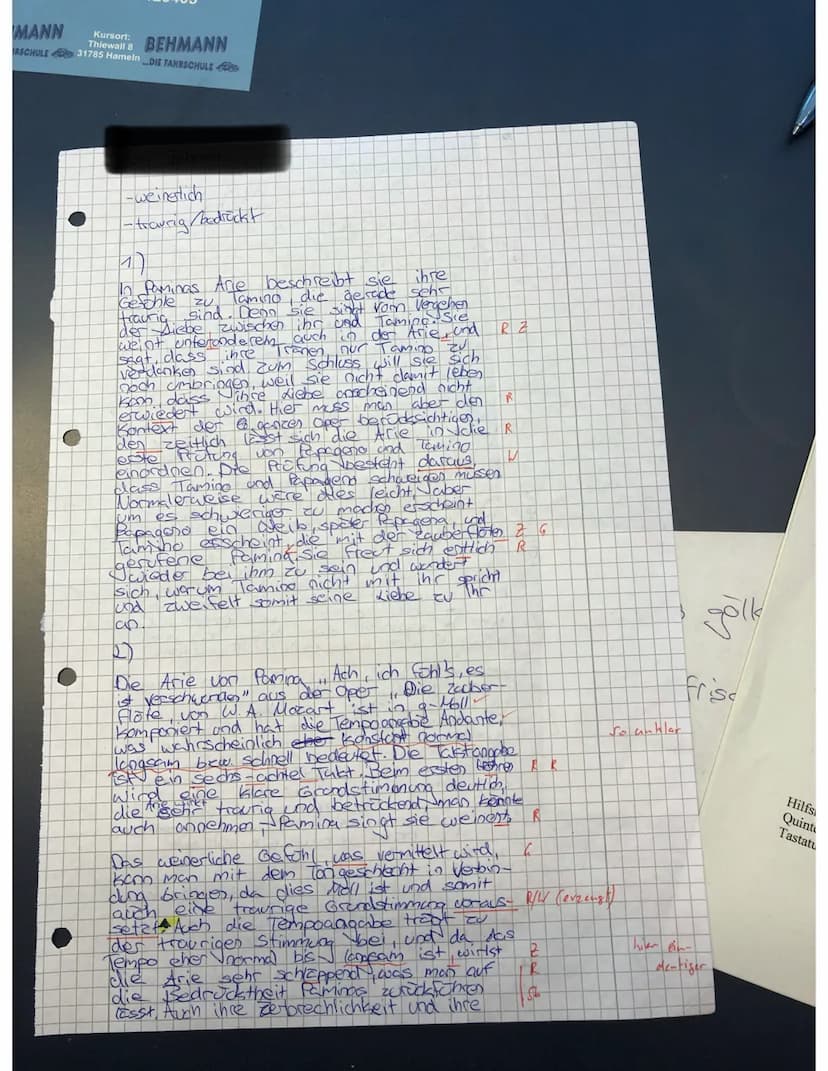 MANN
RSCHULE
Kursort:
Thiewall 8
31785 Hameln
BEHMANN
...DIE FAHRSCHULE
-weinerlich
-traurig/bedrückt
1)
In Paminas Arie beschreibt sie ihre
Gefühle zu Tamino, die gerade sehr
traurig sind. Denn sie singt vom Vergehen
der Liebe, zwischen ihr und Tamino. Sie
weint unteranderem auch in der Arie, und R Z
sagt, dass ihre Tränen nur Tamino zu
verdanken sind zum Schluss, will sie sich
noch umbringen, weil sie nicht damit leben
kann, dass ihre Liebe anscheinend nicht
erwiedert wird. Hier muss man aber den R
Kontext der ganzen Oper berücksichtigen,
den zeitlich lässt sich die Arie in die R
erste Prüfung von Papageno und Tamino
einordnen. Die Prüfung besteht daraus,
dass Tamino und Papageno schweigen müssen
Normalerweise wäre dies leicht, aber
um es schwieriger zu machen erscheint
Papageno ein Weib, später Papagena, und
Tamino erscheint, die mit der Zauberflöten Z G
gerufene Pamina. Sie freut sich entlich R
wieder bei ihm zu sein und wundert
sich, warum Tamino nicht mit ihr spricht
und zweifelt somit seine Liebe zu ihr
an.
2)
Die Arie von Pamina „Ach, ich fühl's, es
ist verschwunden" aus der Oper „Die Zauber-
flöte„ von W.A. Mozart ist in g-Moll
komponiert und hat die Tempoangabe Andante,
was wahrscheinlich eher konstant normal so unklar
langsam bzw. schnell bedeutet. Die Taktangabe
ist ein sechs-achtel Takt. Beim ersten R R
wird eine klare Grundstimmung deutlich,
die Arie wirkt sehr traurig und betrückend man könnte
auch annehmen, Pamina singt sie weinerlich R
Das weinerliche Gefühl, was vermittelt wird, G
kann man mit dem Tongeschlecht in Verbin-
dung bringen, da dies Moll ist und somit
auch eine traurige Grundstimmung voraus- R/W (erzeugt)
setzt. Auch die Tempoangabe trägt zu
der traurigen Stimmung bei, und da das
Tempo eher normal bis langsam ist, wirkt Z hier ein-
die Arie sehr scheppend, was man auf R deutiger
die Bedrücktheit Paminas zurückführen Sb
lässt. Auch ihre Zerbrechlichkeit und ihre
gölk
frisc
Hilfs
Quinte
Tastatu